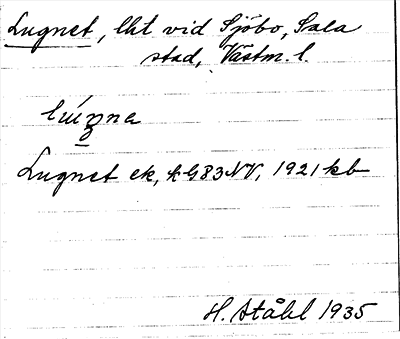 Lugnet, lht vid Sjöbo, Sala
stad, Västm. l.
Lugnet ek, k G83 NV, 1921 kb
H. Ståhl 1935